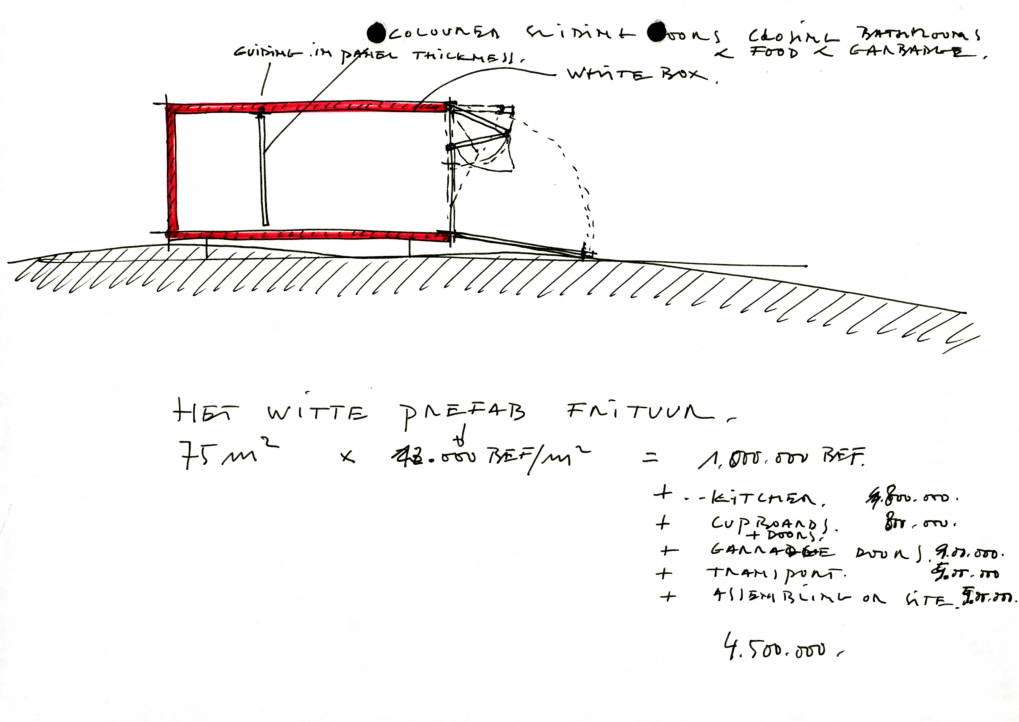 COLOURED SLIDING DOORS CLOSING BATHROOMS
& FOOD & GARBADGE.
GUIDING IN PANEL THICKNESS.
WHITE BOX.
HET WITTE PREFAB FRITUUR.
75 m² x .000 BEF/m² = 1.000.000 BEF.
+ ..KITCHEN. .800.000.
+ CUPBOARDS. 800.000.
+ DOORS.
+ DOORS. 900.000.
+ TRANSPORT. 500.000
+ ASSEMBLING ON SITE. 500.000.
4.500.000.